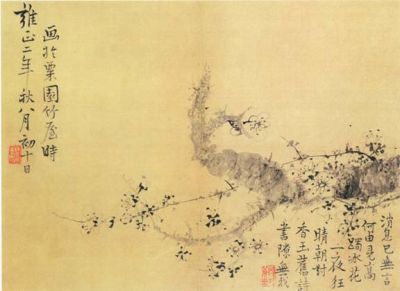 消息已無言
何由見高
躅冰花
一夜狂
晴朝對
香玉舊詩
書隙
画於栗園竹屋時
雍正二年秋八月初十日